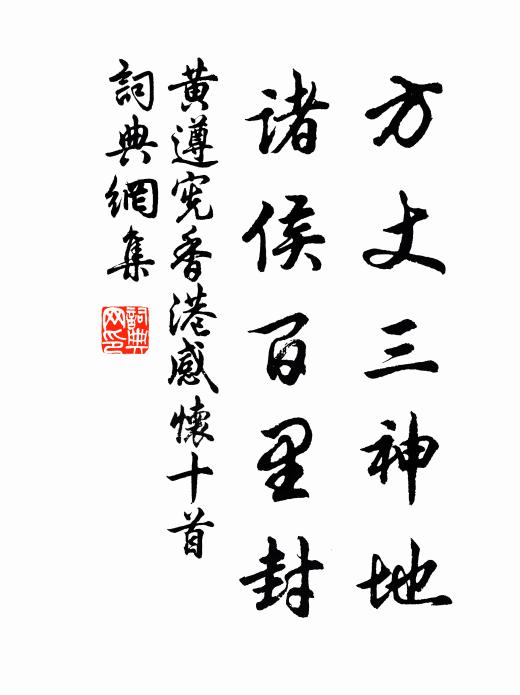 方丈三神地
诸侯百里封
黄遵宪香港感懷十首
詞典網集
詞典网印